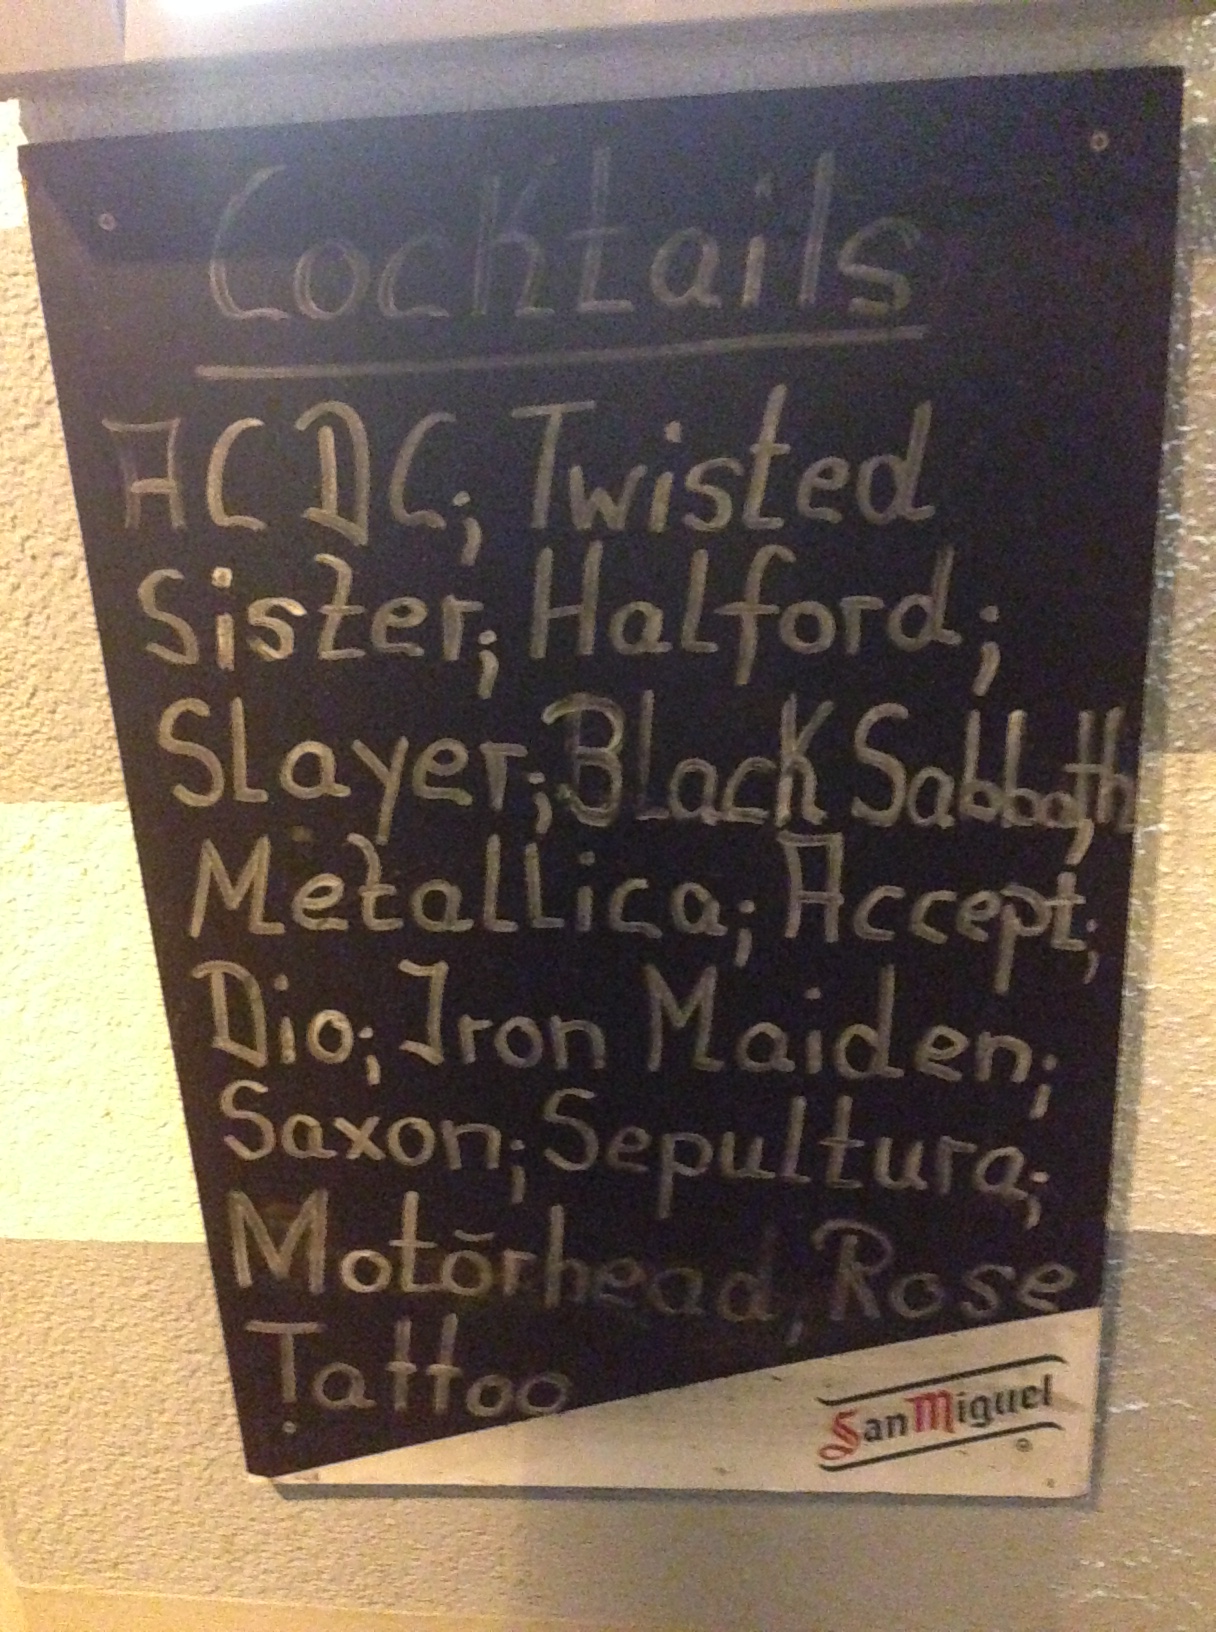 Cocktails
AC DC; Twisted
Sister; Halford;
Slayer; Black Sabbath,
Metallica; Accept;
Dio; Iron Maiden;
Saxon; Sepultura;
Motörhead, Rose
Tattoo
San Miguel